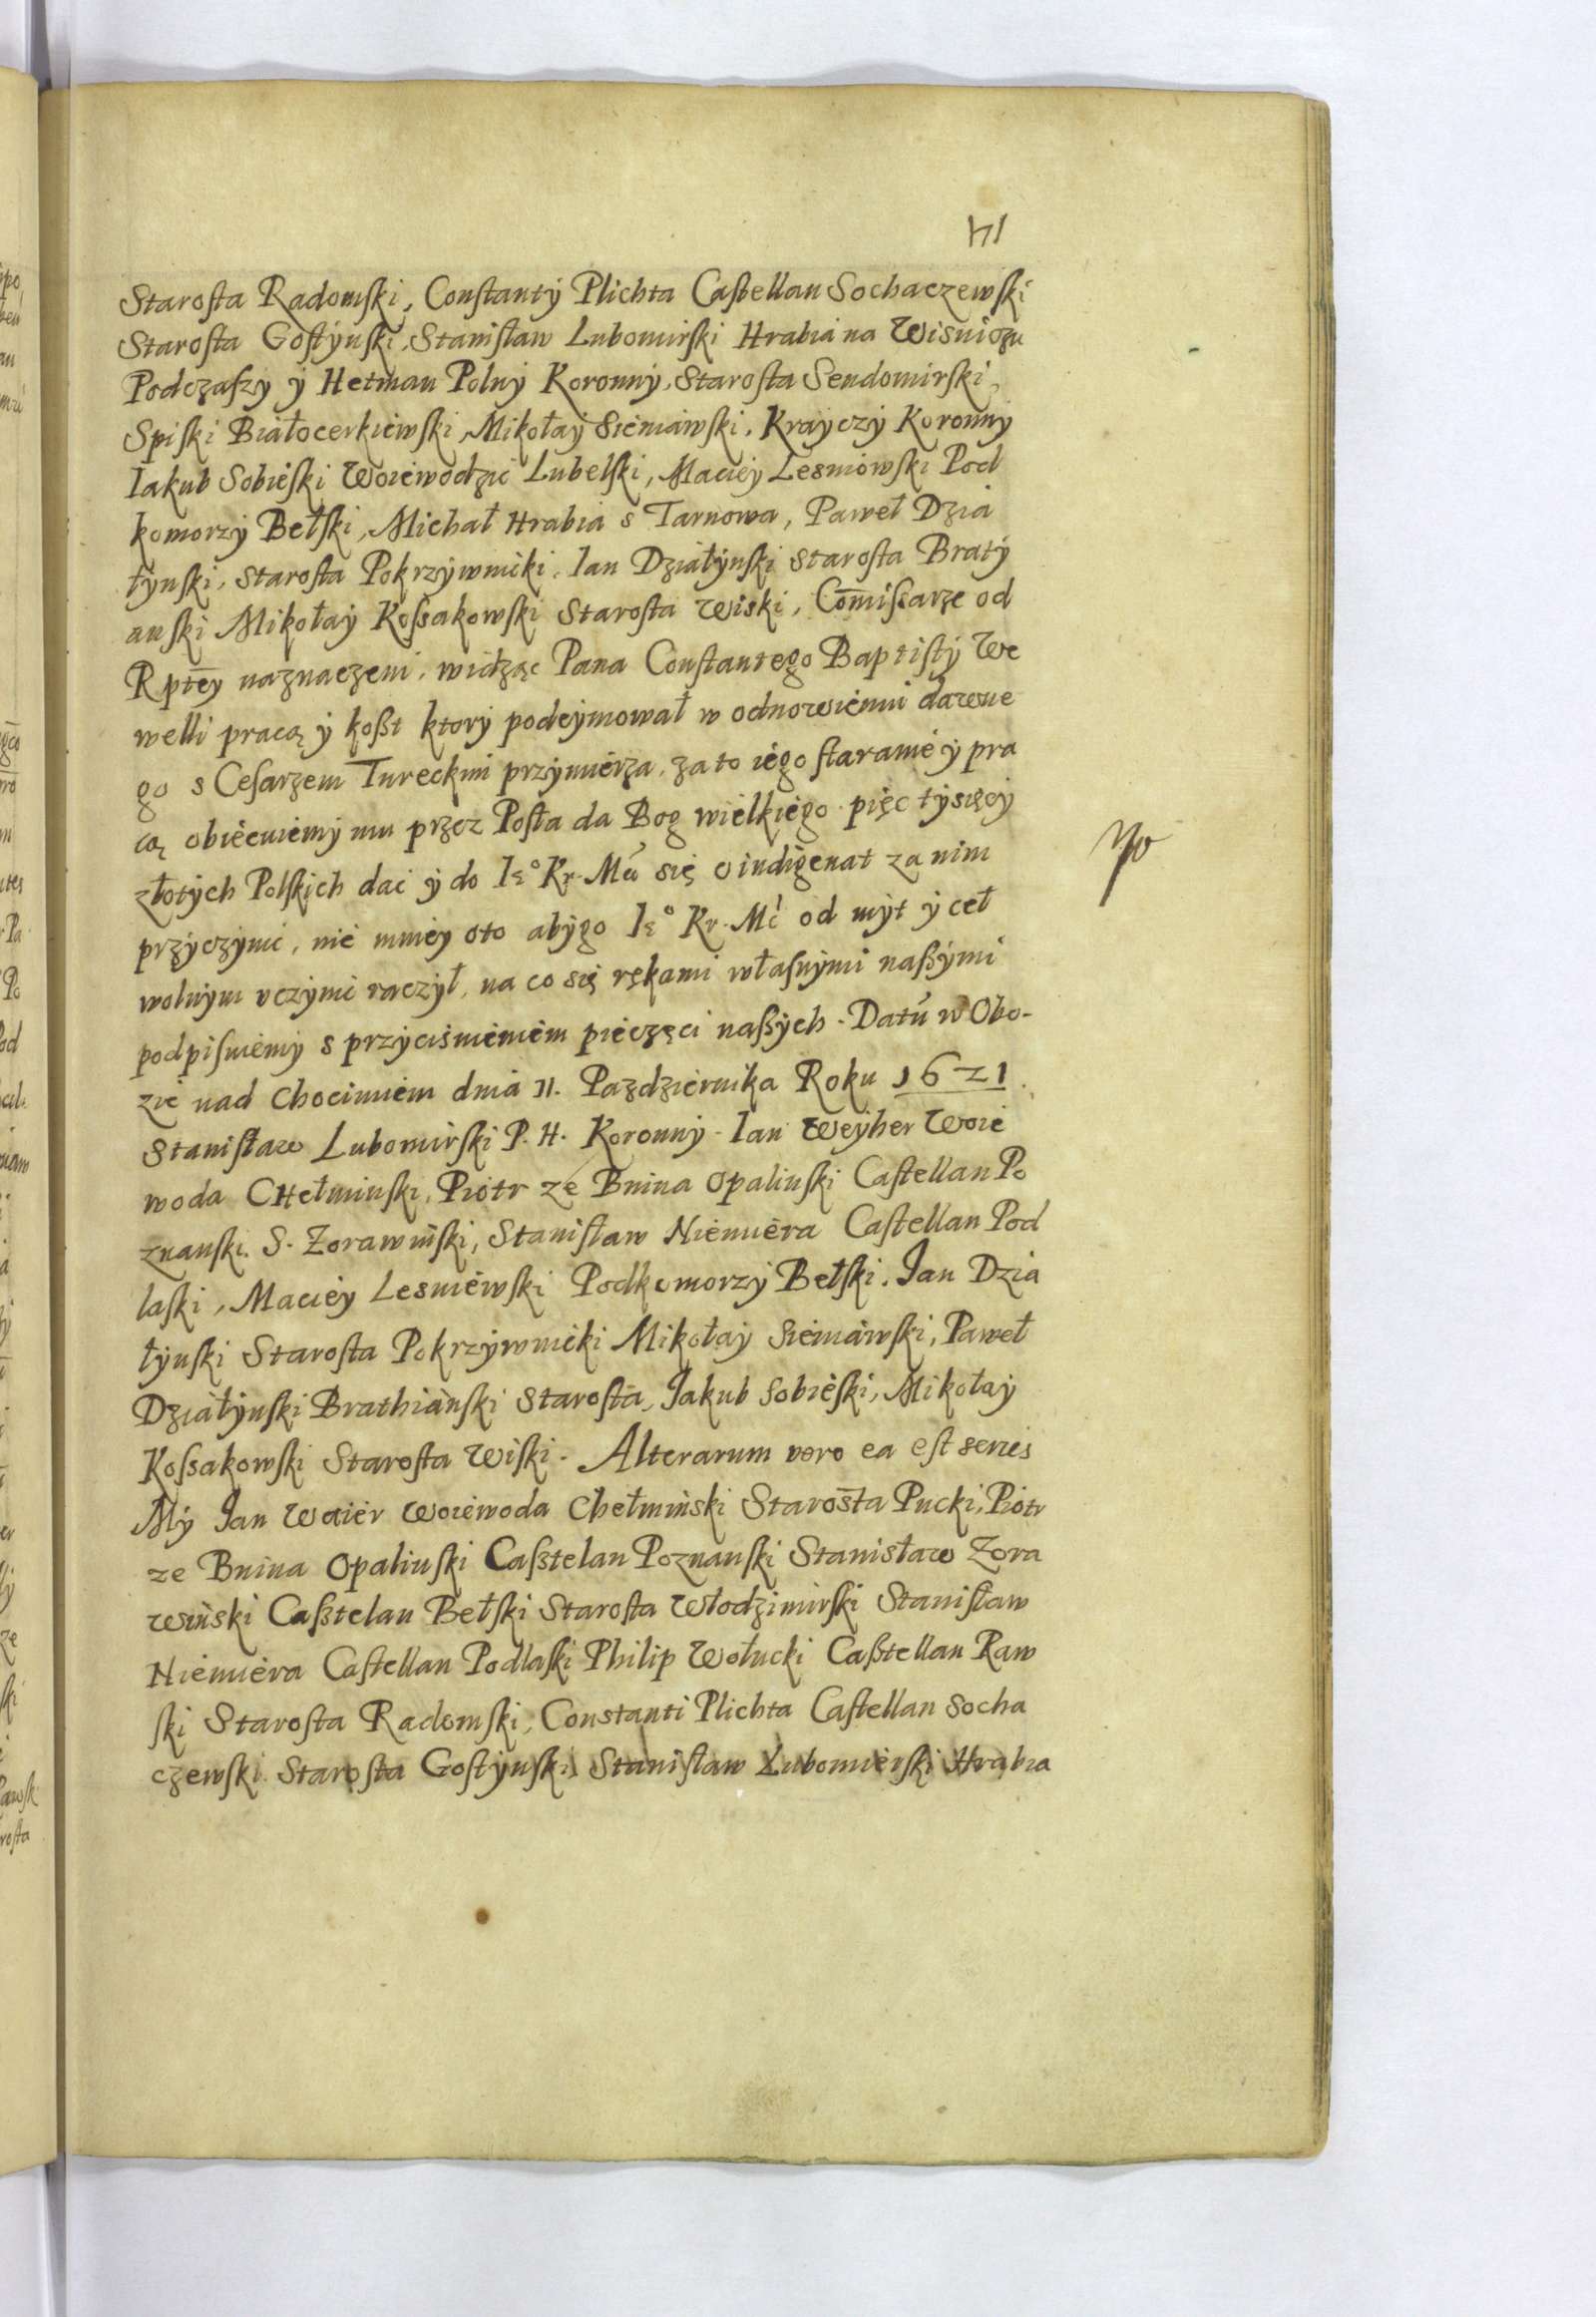 14
Starosta Radomski, Constantÿ Plichta Castellan Sochaczewski
Starosta Gostÿnski, Stanisław Lubomirski Hrabia na Wisniczu
Podczaszy ÿ Hetman Polnÿ Koronnÿ, Starosta Sendomirski,
Spiski Białocerkiewski, Mikołaÿ Sieniawski, Kraÿczÿ Koronnÿ
Iakub Sobieski Woiewodzic Lubelski, Macieÿ Lesniowski Pod
komorzÿ Bełski, Michał Hrabia s Tarnowa, Paweł Dzia
łÿnski, Starosta Pokrzÿwnicki, Ian Działÿnski Starosta Bratÿ
anski Mikołaÿ Kossakowski Starosta Wiski, Com̄issarze od
Rpteÿ naznaczeni, widząc Pana Constantego Baptistÿ We
welli pracą ÿ koszt ktorÿ podeÿmował w odnowieniu dawne
go s Cesarzem Tureckim przÿmierza, za to iego staranié ÿ pra
cą obiecuiemÿ mu przez Posła da Bog wielkiego pięc tÿsięcÿ
złotÿch Polskich dać ÿ do Iᵉ° Kr. Mći się o indigenat za nim
przÿczÿnic, nie mnieÿ oto abÿ go Iᵉ° Kr. Mć od mÿt ÿ ceł
wolnÿm vczÿnic raczÿł, na co się rękami własnÿmi naszÿmi
podpisuiemÿ s przÿcisnieniem pieczęci naszÿch. Datū w Obo-
zie nad Chocimiem dnia 11. Pazdziernika Roku 1621.
Stanisław Lubomirski P. H. Koronnÿ. Ian Weÿher Woie
woda CHełminski, Piotr ze Bnina Opalinski Castellan Po
znanski. S. Zorawinski, Stanisław Niemiera Castellan Pod
laski, Macieÿ Lesniewski Podkomorzÿ Bełski. Jan Dzia
łÿnski Starosta Pokrzÿwnicki Mikołaÿ Sieniawski, Paweł
Działÿnski Brathianski Starosta, Jakub Sobieski, Mikołaÿ
Kossakowski Starosta Wiski. Alterarum vero ea est series
Mÿ Jan Waier Woiewoda Chełminski Starosta Pucki, Piotr
ze Bnina Opalinski Casztelan Poznanski Stanisław Zora
winski Casztelan Bełski Starosta Włodzimirski Stanisław
Niemiera Castellan Podlaski Philip Wołucki Casztellan Raw
ski Starosta Radomski, Constanti Plichta Castellan Socha
czewski Starosta Gostÿnski, Stanisław Lubomierski Hrabia